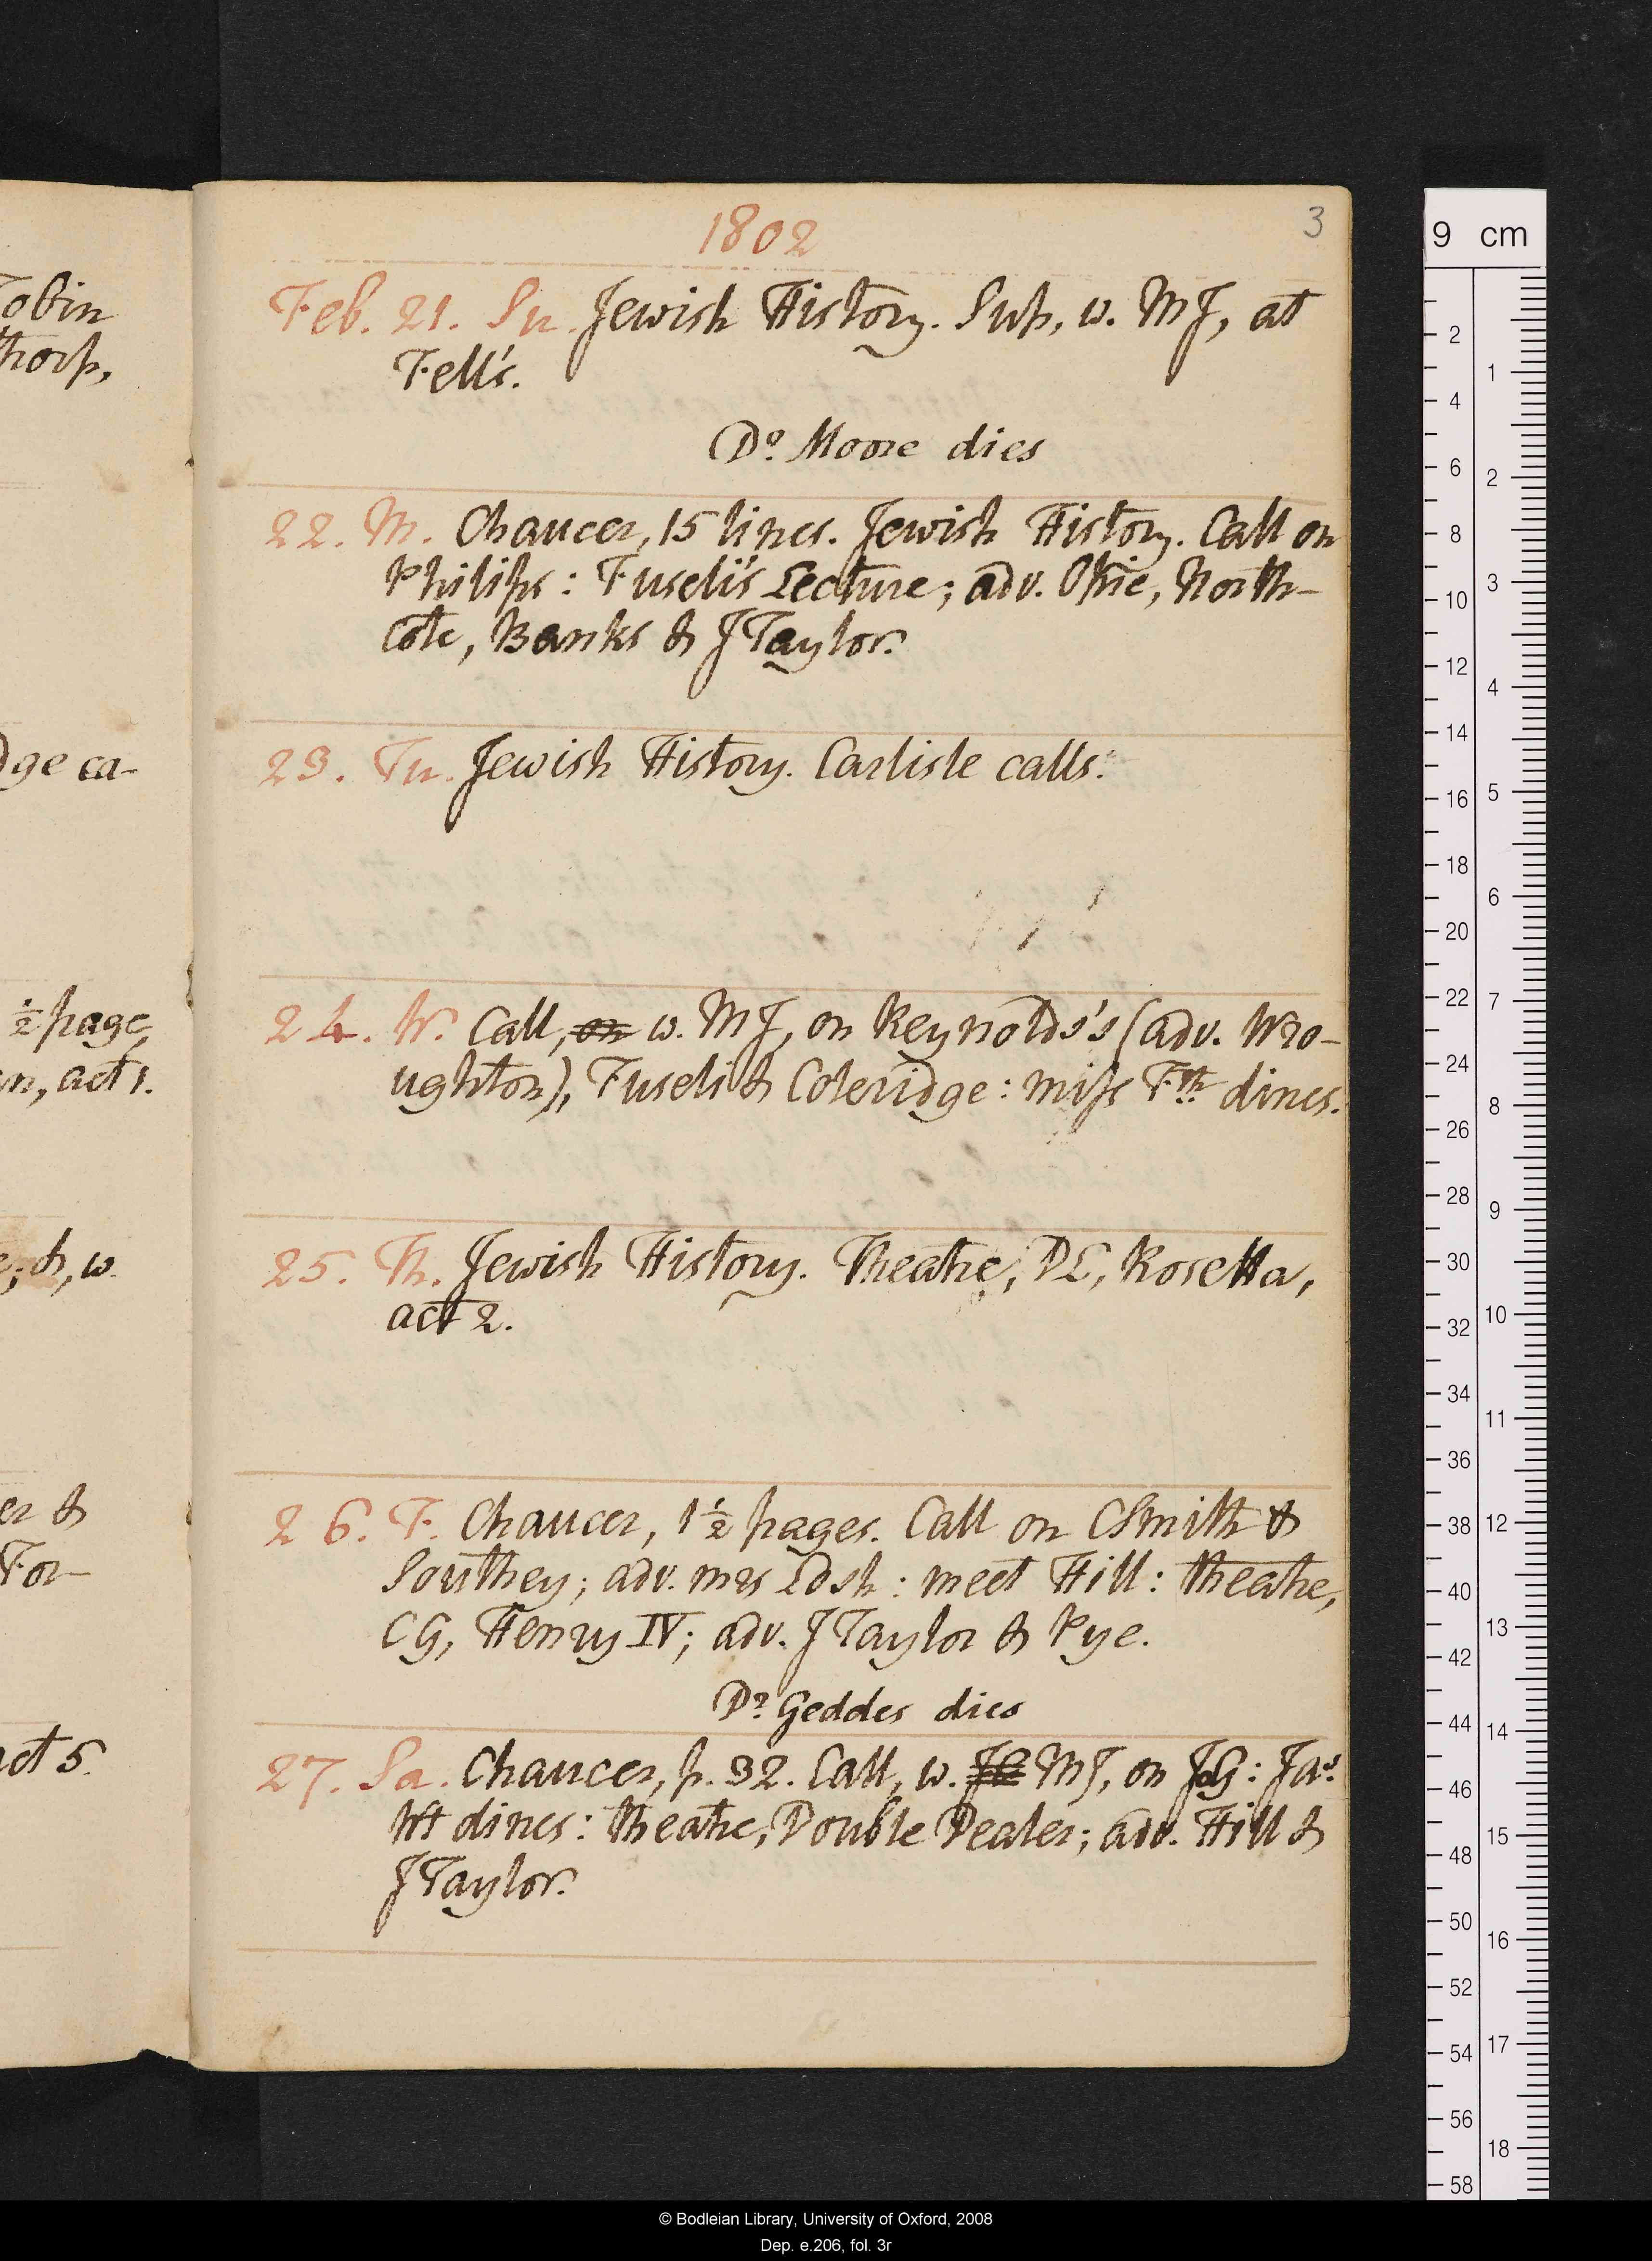 1802
3
Feb. 21. Su. Jewish History. Sup, w. MJ, at
Fell's.
Dr Moore dies
22. M. Chaucer, 15 lines. Jewish History. Call on
Philips: Fuseli's Lecture; adv. Opie, North-
cote, Banks & J Taylor.
23. Tu. Jewish History. Carlisle calls.
24. W. Call, on w. MJ, on Reynolds's (adv. Wro-
ughton), Fuseli & Coleridge: miss Fth dines.
25. Th. Jewish History. Theatre, DL, Rosetta,
act 2.
26. F. Chaucer, 1½ pages. Call on CSmith &
Southey; adv. mrs Ldsh: meet Hill: theatre,
CG, Henry IV; adv. J Taylor & Pye.
Dr Geddes dies
27. Sa. Chaucer, p. 32. Call, w. MJ, on JG: Jas
Wt dines: theatre, Double Dealer; adv. Hill &
J Taylor.
obin
thorp,
dge ca-
½ page,
n, act 1.
e; &, w.
er &
For-
act 5.
9 cm
2
4
6
8
10
12
14
16
18
20
22
24
26
28
30
32
34
36
38
40
42
44
46
48
50
52
54
56
58
1
2
3
4
5
6
7
8
9
10
11
12
13
14
15
16
17
18
© Bodleian Library, University of Oxford, 2008
Dep. e.206, fol. 3r